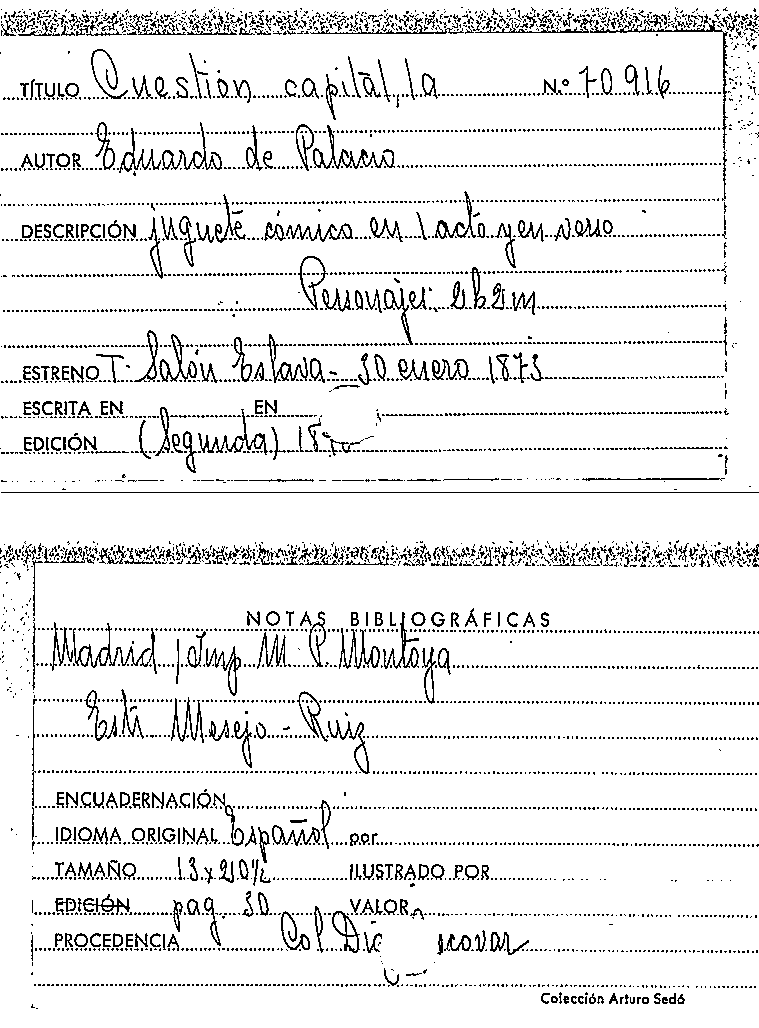 TÍTULO Cuestión capital, la N.º 70916
AUTOR Eduardo de Palacio
DESCRIPCIÓN juguete cómico en 1 acto y en verso
Personajes: 2h2m
ESTRENO T. Salón Eslava - 30 enero 1873
ESCRITA EN EN
EDICIÓN (Segunda)
NOTAS BIBLIOGRÁFICAS
Madrid / Imp M. P. Montoya
Estr Mesejo - Ruiz
ENCUADERNACIÓN
IDIOMA ORIGINAL Español por
TAMAÑO 13 x ILUSTRADO POR
EDICIÓN pag. 30 VALOR
PROCEDENCIA Col
Colección Arturo Sedó